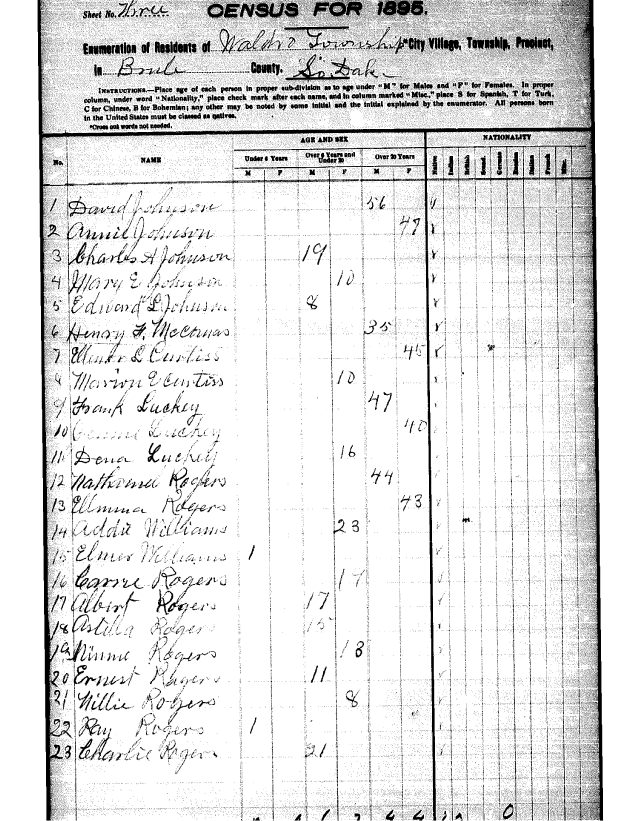 Sheet No. Three CENSUS FOR 1895.
Enumeration of Residents of Waldro Township *City Village, Township, Precinct,
in Brule County. So Dak
INSTRUCTIONS.—Place age of each person in proper sub-division as to age under "M" for Males and "F" for Females. In proper
column, under word "Nationality," place check mark after each name, and in column marked "Misc," place S for Spanish, T for Turk,
C for Chinee, B for Bohemian; any other may be noted by some initial and the initial explained by the enumerator. All persons born
in the United States must be classed as natives.
*Cross out words not needed.
AGE AND SEX NATIONALITY
No. NAME Under 6 Years Over 6 Years and Under 20 Over 20 Years
M F M F M F
1 David Johnson 56
2 Annie Johnson 47
3 Charles A Johnson 19
4 Mary E Johnson 10
5 Edward L Johnson 8
6 Henry F. McComas 35
7 L Curtiss 45
8 Marion E Curtiss 10
9 Frank Luckey 47
10 Luckey 40
11 Dena Luckey 16
12 Rogers 44
13 Emma Rogers 43
14 Addie Williams 23
15 Elmer Williams 1
16 Carrie Rogers 17
17 Albert Rogers 17
18 Rogers 15
19 Minnie Rogers 13
20 Ernest Rogers 11
21 Willie Rogers 8
22 Ray Rogers 1
23 Charlie Rogers 21